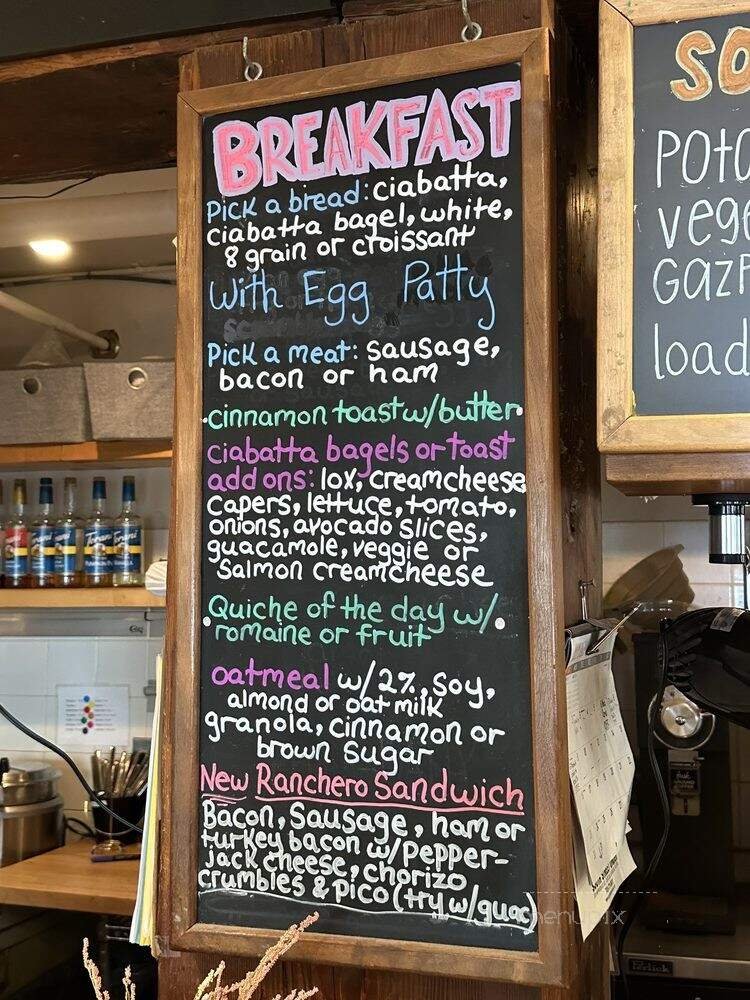 BREAKFAST
Pick a bread: ciabatta,
ciabatta bagel, white,
8 grain or croissant
with Egg Patty
Pick a meat: sausage,
bacon or ham
•cinnamon toast w/butter•
ciabatta bagels or toast
add ons: lox, creamcheese
capers, lettuce, tomato,
onions, avocado slices,
guacamole, veggie or
salmon creamcheese
•Quiche of the day w/•
romaine or fruit
oatmeal w/2%, soy,
almond or oat milk
granola, cinnamon or
brown sugar
New Ranchero Sandwich
Bacon, Sausage, ham or
turkey bacon w/Pepper-
jack cheese, chorizo
crumbles & pico (try w/guac)
SO
POTA
vega
GAZP
load
Torani
Torani
Torani